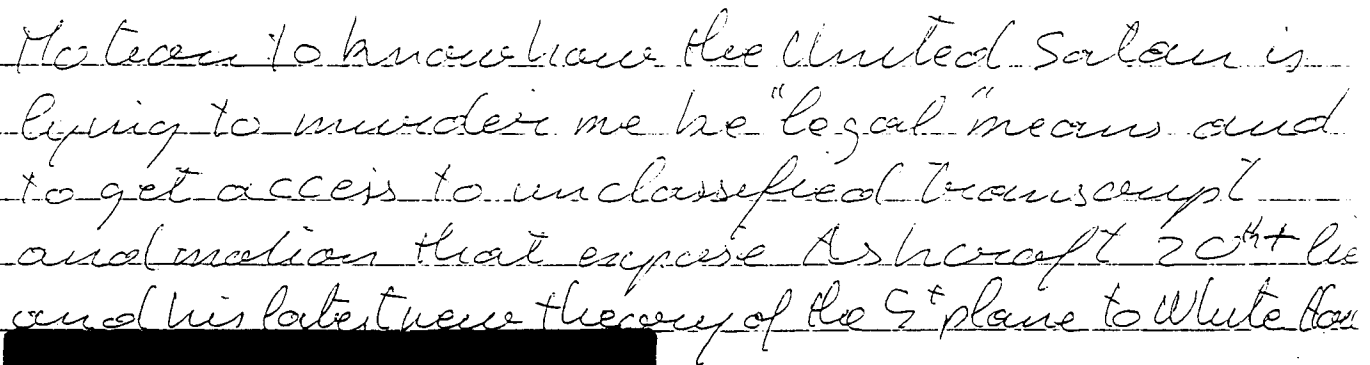 Motion to know how the United Satan is
lying to murder me be "legal" means and
to get access to unclassified transcript
and motion that expose Ashcroft 20th+ lie
and his latest new theory of the 5t plane to White Hou